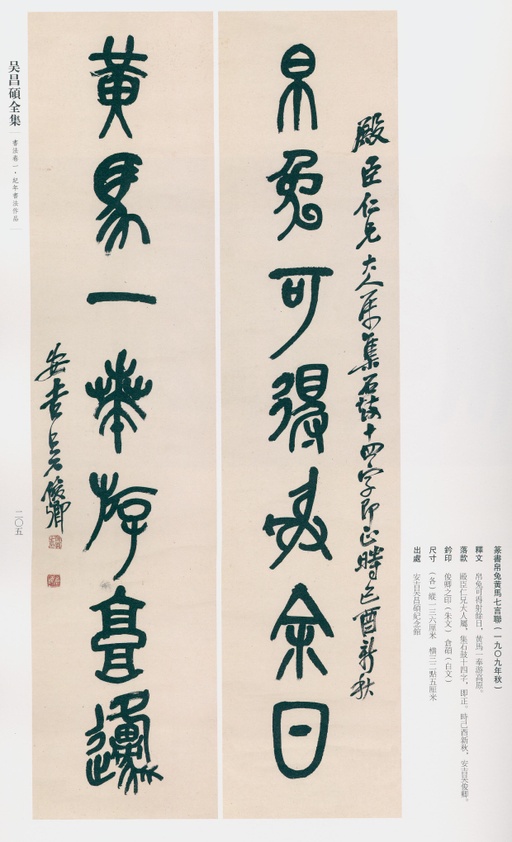 帛兔可得射余日
殿臣仁兄大人屬集石鼓十四字即正時己酉新秋
黄馬一奉游高原
安吉吳俊卿
篆書帛兔黄馬七言聯(一九〇九年秋)
釋文 帛兔可得射餘日,黄馬一奉游高原。
落款 殿臣仁兄大人屬,集石鼓十四字,即正。時己酉新秋,安吉吳俊卿。
鈐印 俊卿之印(朱文) 倉碩(白文)
尺寸 (各)縱一三六厘米 橫三二點五厘米
出處 安吉吳昌碩紀念館
吴昌碩全集
書法卷一·紀年書法作品
二〇五